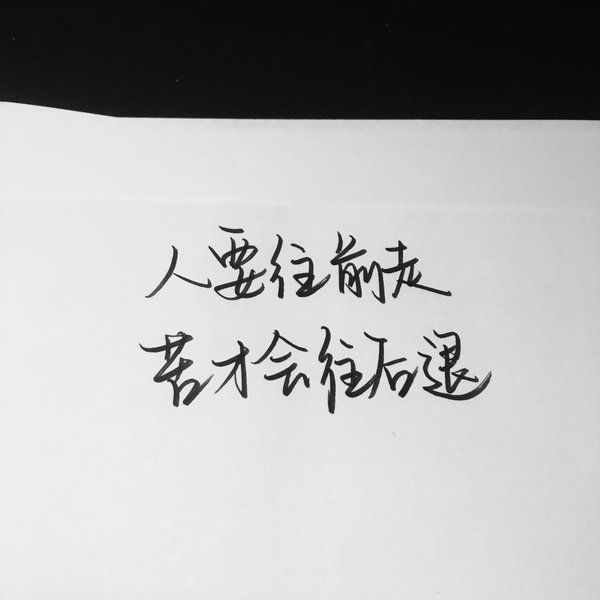 人要往前走
苦才会往后退